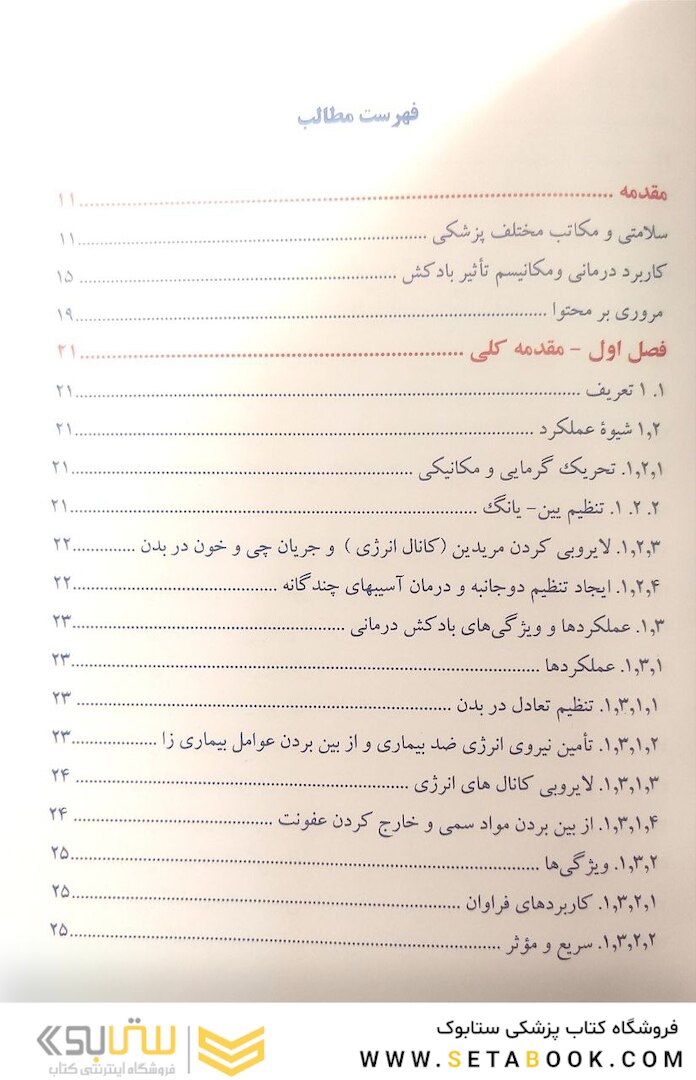 فهرست مطالب
مقدمه ........................................ ۱۱
سلامتی و مکاتب مختلف پزشکی ........................................ ۱۱
کاربرد درمانی ومکانیسم تأثیر بادکش ........................................ ۱۵
مروری بر محتوا ........................................ ۱۹
فصل اول - مقدمه کلی ........................................ ۲۱
۱. ۱ تعریف ........................................ ۲۱
۱,۲ شیوهٔ عملکرد ........................................ ۲۱
۱,۲,۱. تحریک گرمایی و مکانیکی ........................................ ۲۱
۲. ۲. ۱. تنظیم یین- یانگ ........................................ ۲۱
۱,۲,۳. لایروبی کردن مریدین (کانال انرژی ) و جریان چی و خون در بدن ............. ۲۲
۱,۲,۴. ایجاد تنظیم دوجانبه و درمان آسیبهای چندگانه ........................................ ۲۲
۱,۳. عملکردها و ویژگی‌های بادکش درمانی ........................................ ۲۳
۱,۳,۱. عملکردها ........................................ ۲۳
۱,۳,۱,۱. تنظیم تعادل در بدن ........................................ ۲۳
۱,۳,۱,۲. تأمین نیروی انرژی ضد بیماری و از بین بردن عوامل بیماری زا ................. ۲۳
۱,۳,۱,۳. لایروبی کانال های انرژی ........................................ ۲۴
۱,۳,۱,۴. از بین بردن مواد سمی و خارج کردن عفونت ........................................ ۲۴
۱,۳,۲. ویژگی‌ها ........................................ ۲۵
۱,۳,۲,۱. کاربردهای فراوان ........................................ ۲۵
۱,۳,۲,۲. سریع و مؤثر ........................................ ۲۵
فروشگاه کتاب پزشکی ستابوک
WWW.SETABOOK.COM
ستابوک
فروشگاه اینترنتی کتاب